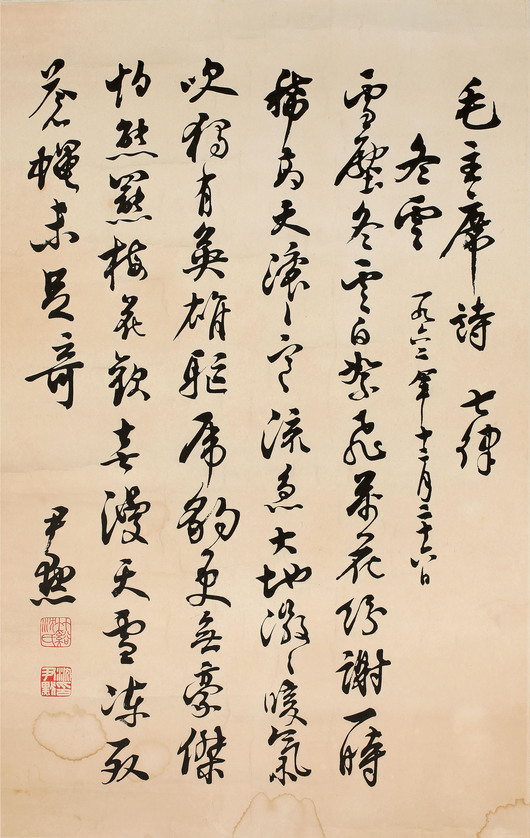 毛主席詩 七律
冬雲 一九六二年十二月二十六日
雪壓冬雲白絮飛萬花紛謝一時
稀高天滾〻寒流急大地微〻暖氣
吹獨有英雄驅虎豹更無豪傑
怕熊羆梅花歡喜漫天雪凍死
蒼蠅未足奇
尹默
竹谿沈氏